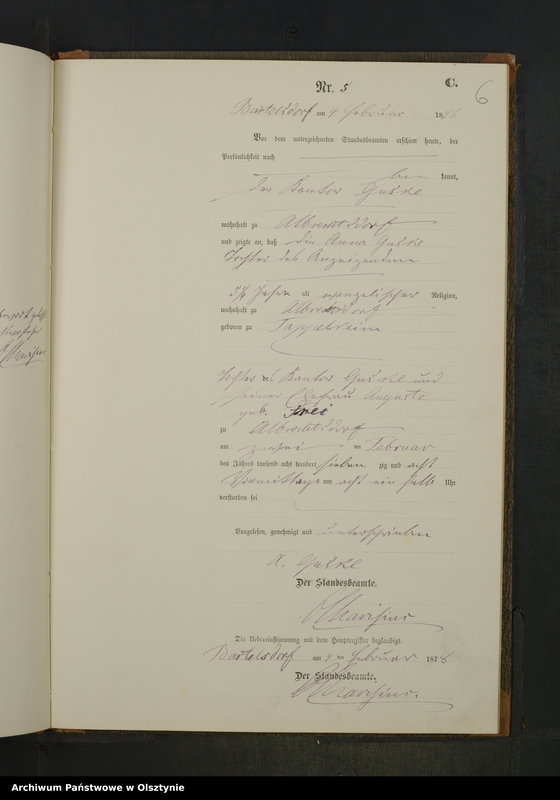 Nr. 5
C.
6
Bartelsdorf am 4 Februar 1878
Vor dem unterzeichneten Standesbeamten erschien heute, der
Persönlichkeit nach
be kannt,
der Kantor Guskl
wohnhaft zu Albrechtsdorf
und zeigte an, daß die Anna Guskl
Tochter des Anzeigenden
5¾ Jahre alt evangelischer Religion,
wohnhaft zu Albrechtsdorf
geboren zu
Tochter des Kantor Guskl und
seiner Ehefrau Auguste
geb. Frei
zu Albrechtsdorf
am zwei ten Februar
des Jahres tausend acht hundert sieben zig und acht
Vormittags um acht ein halb Uhr
verstorben sei
Vorgelesen, genehmigt und unterschrieben
A. Guskl
Der Standesbeamte.
Die Uebereinstimmung mit dem Hauptregister beglaubigt.
Bartelsdorf am 4 ten Februar 1878
Der Standesbeamte.
Archiwum Państwowe w Olsztynie